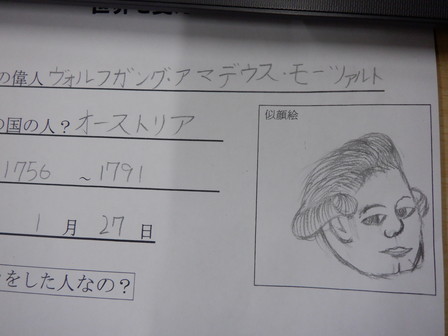 の偉人 ヴォルフガング・アマデウス・モーツァルト
の国の人？ オーストリア
似顔絵
1756 ～1791
1月 27日
をした人なの？